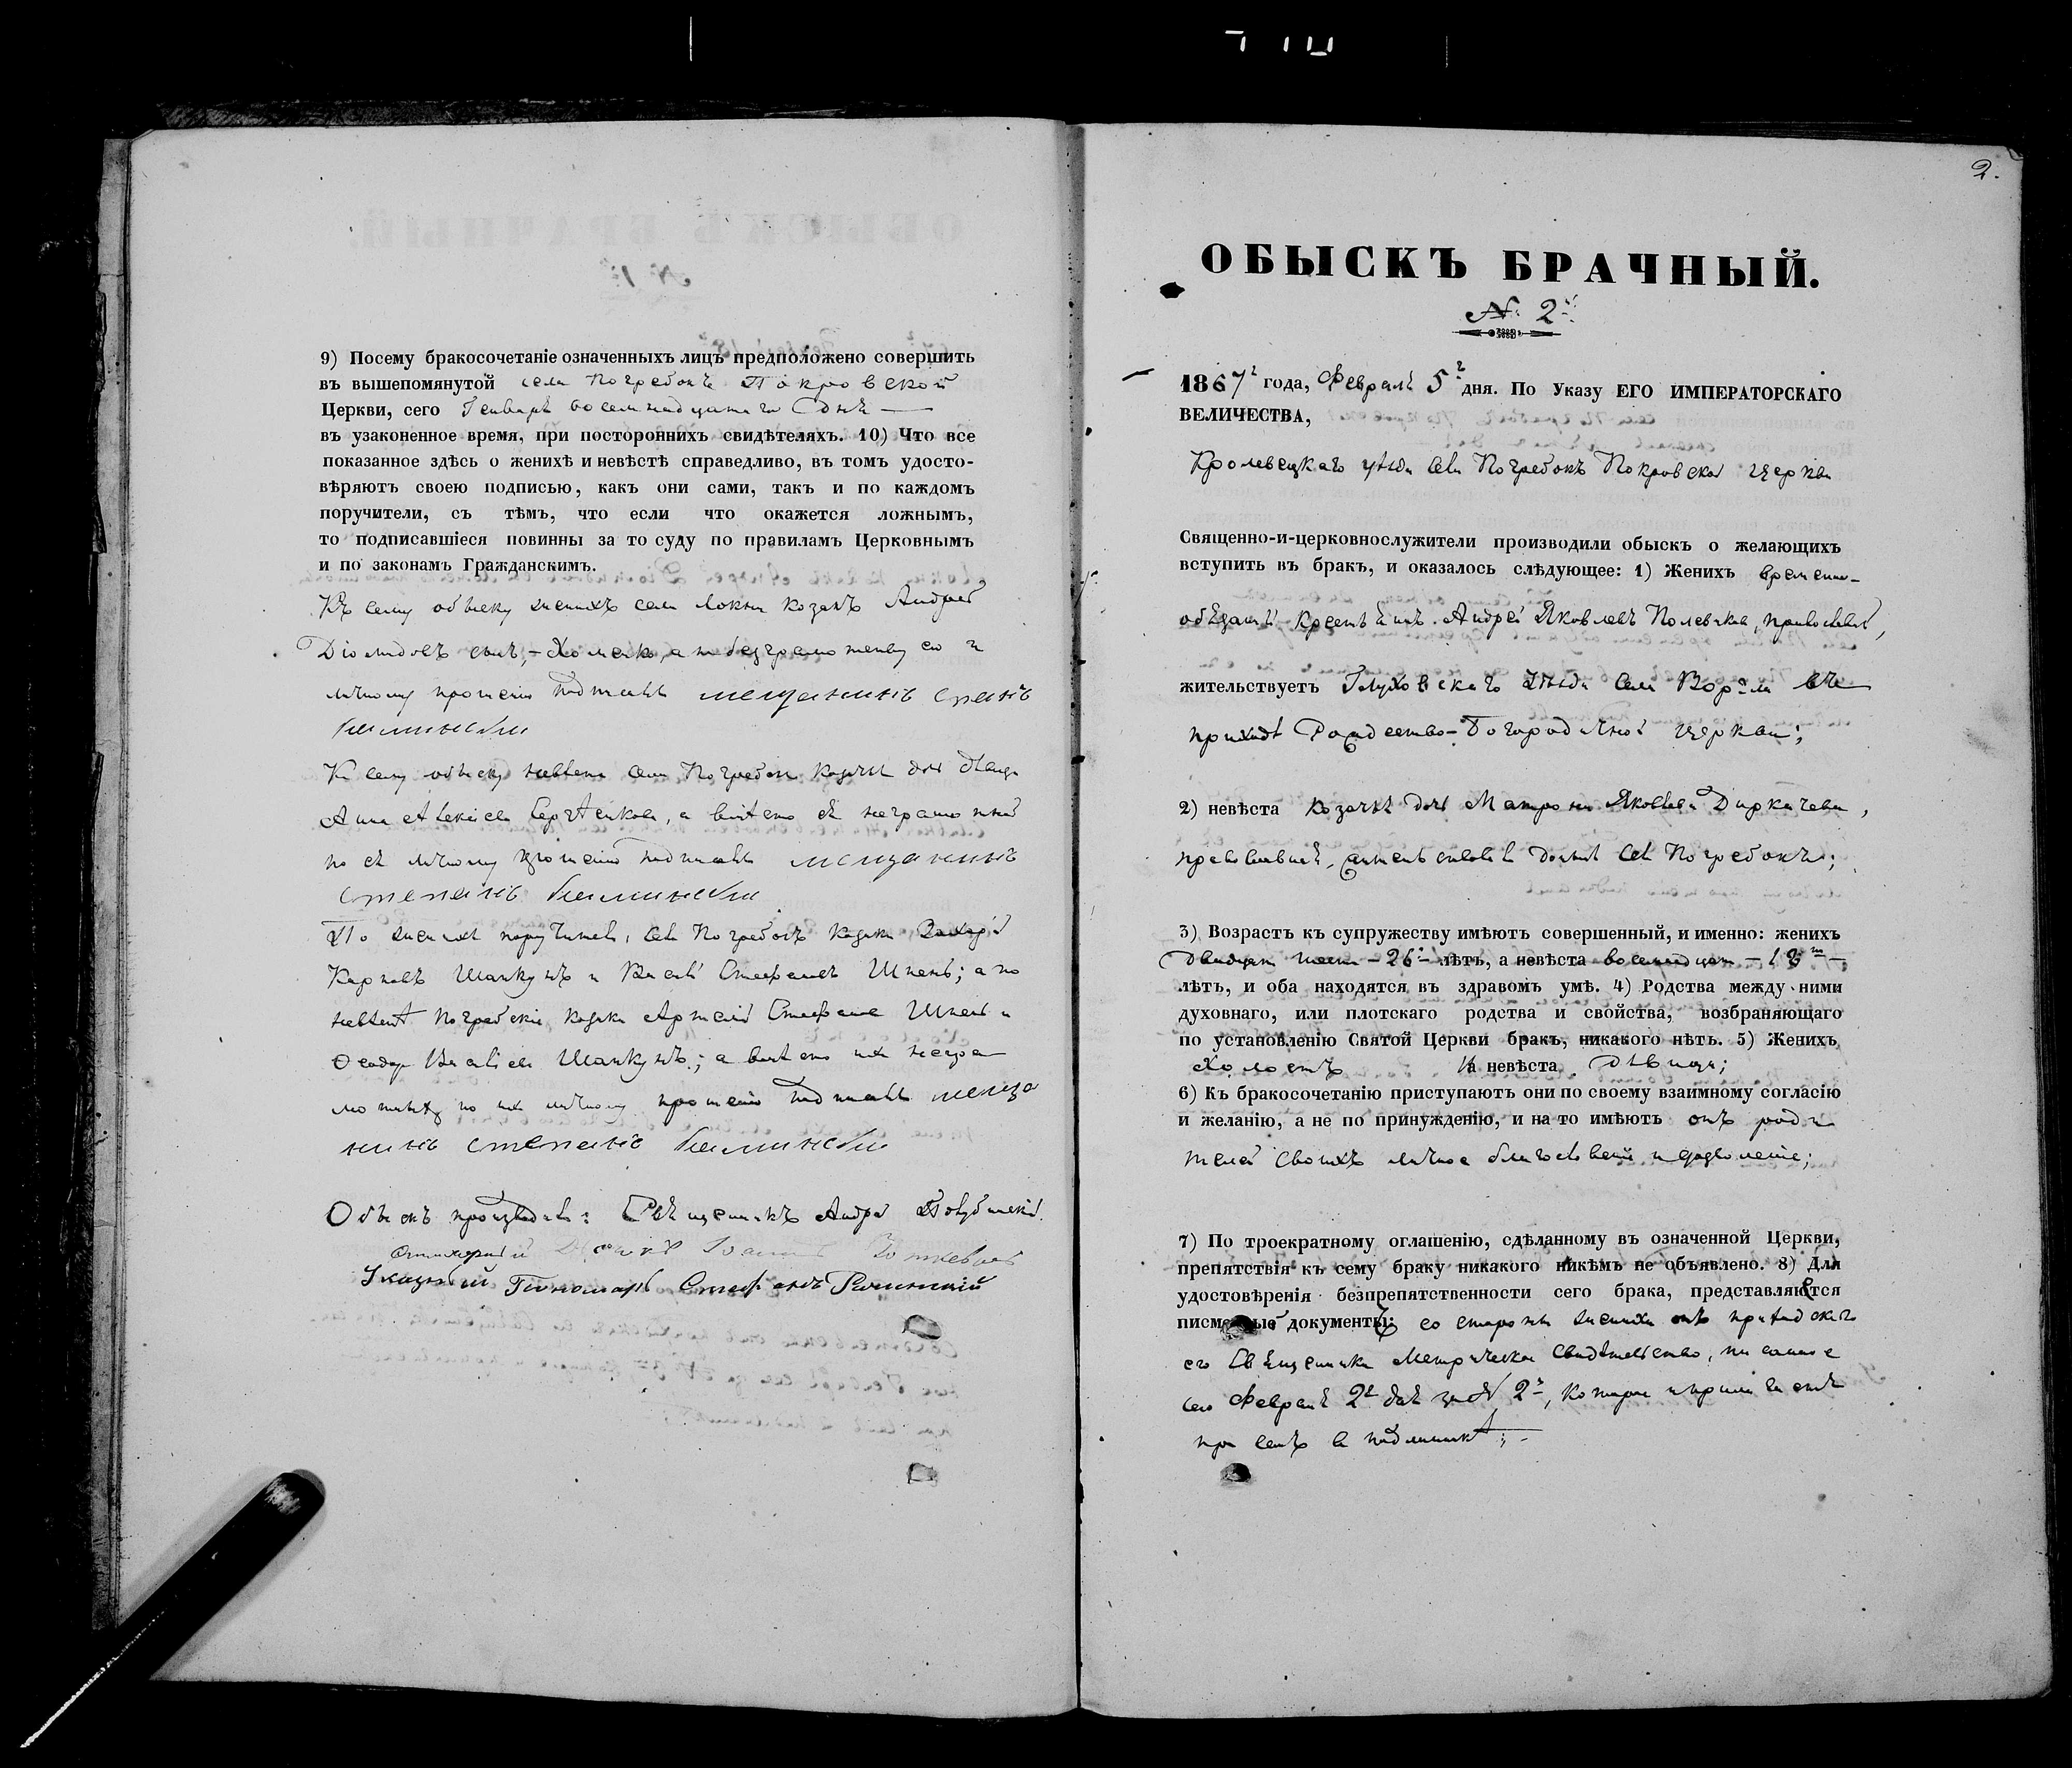 9) Посему бракосочетаніе означенныхъ лицъ предположено совершить
въ вышепомянутой села Погребокъ Покровской
Церкви, сего Генваря восемнадцатаго дня —
въ узаконенное время, при постороннихъ свидѣтеляхъ. 10) Что все
показанное здѣсь о женихѣ и невѣстѣ справедливо, въ томъ удосто-
вѣряютъ своею подписью, какъ они сами, такъ и по каждомъ
поручители, съ тѣмъ, что если что окажется ложнымъ,
то подписавшіеся повинны за то суду по правиламъ Церковнымъ
и по законамъ Гражданскимъ.
Къ сему обыску женихъ села Локни козакъ Андрей
Діомидовъ сынъ, а по безграмотству его и
личному прошенію подписалъ мещанинъ
Къ сему обыску невѣста села Погребокъ козачья дочь дѣвица
Анна а вмѣсто ея неграмотной
по ея личному прошенію подписалъ мещанинъ
степанъ
По женихѣ поручители, села Погребокъ козаки Захарій
Карповъ Шапкунъ и Стефановъ Шпень; а по
невѣстѣ Погребскіе козаки Артемій Стефановъ Шпень и
Шапкунъ; а вмѣсто ихъ негра-
мотныхъ по ихъ личному прошенію подписалъ меща
нинъ степанъ
Обыскъ производили: Священникъ Андрей
Указный Пономарь Стефанъ
2.
ОБЫСКЪ БРАЧНЫЙ.
№ 2й
1867г года, Февраля 5г дня. По Указу ЕГО ИМПЕРАТОРСКАГО
ВЕЛИЧЕСТВА,
Кролевецкаго уѣзда села Погребокъ Покровской церкви
Священно-и-церковнослужители производили обыскъ о желающихъ
вступить въ бракъ, и оказалось слѣдующее: 1) Женихъ временно-
обязанный крестьянинъ Андрей Яковлевъ православный,
жительствуетъ Глуховскаго уѣзда села въ
приходѣ Рождество-Богородичной церкви;
2) невѣста козачья дочь Матрона Яковлева Диркачева,
православная, жительствовала донынѣ села Погребокъ;
3) Возрастъ къ супружеству имѣютъ совершенный, и именно: женихъ
двадцать шесть - 26 - лѣтъ, а невѣста восемнадцать - 18 -
лѣтъ, и оба находятся въ здравомъ умѣ. 4) Родства между ними
духовнаго, или плотскаго родства и свойства, возбраняющаго
по установленію Святой Церкви бракъ, никакого нѣтъ. 5) Женихъ
холостъ а невѣста дѣвица;
6) Къ бракосочетанію приступаютъ они по своему взаимному согласію
и желанію, а не по принужденію, и на то имѣютъ отъ роди
телей своихъ личное благословеніе и дозволеніе;
7) По троекратному оглашенію, сдѣланному въ означенной Церкви,
препятствія къ сему браку никакого никѣмъ не объявлено. 8) Для
удостовѣренія безпрепятственности сего брака, представляются
писменные документы: со стороны жениха отъ приходскаго
его Священника Метрическое свидѣтельство, писанное
сего Февраля 2г дня за № 2м, которое
при семъ въ подлинникѣ;-